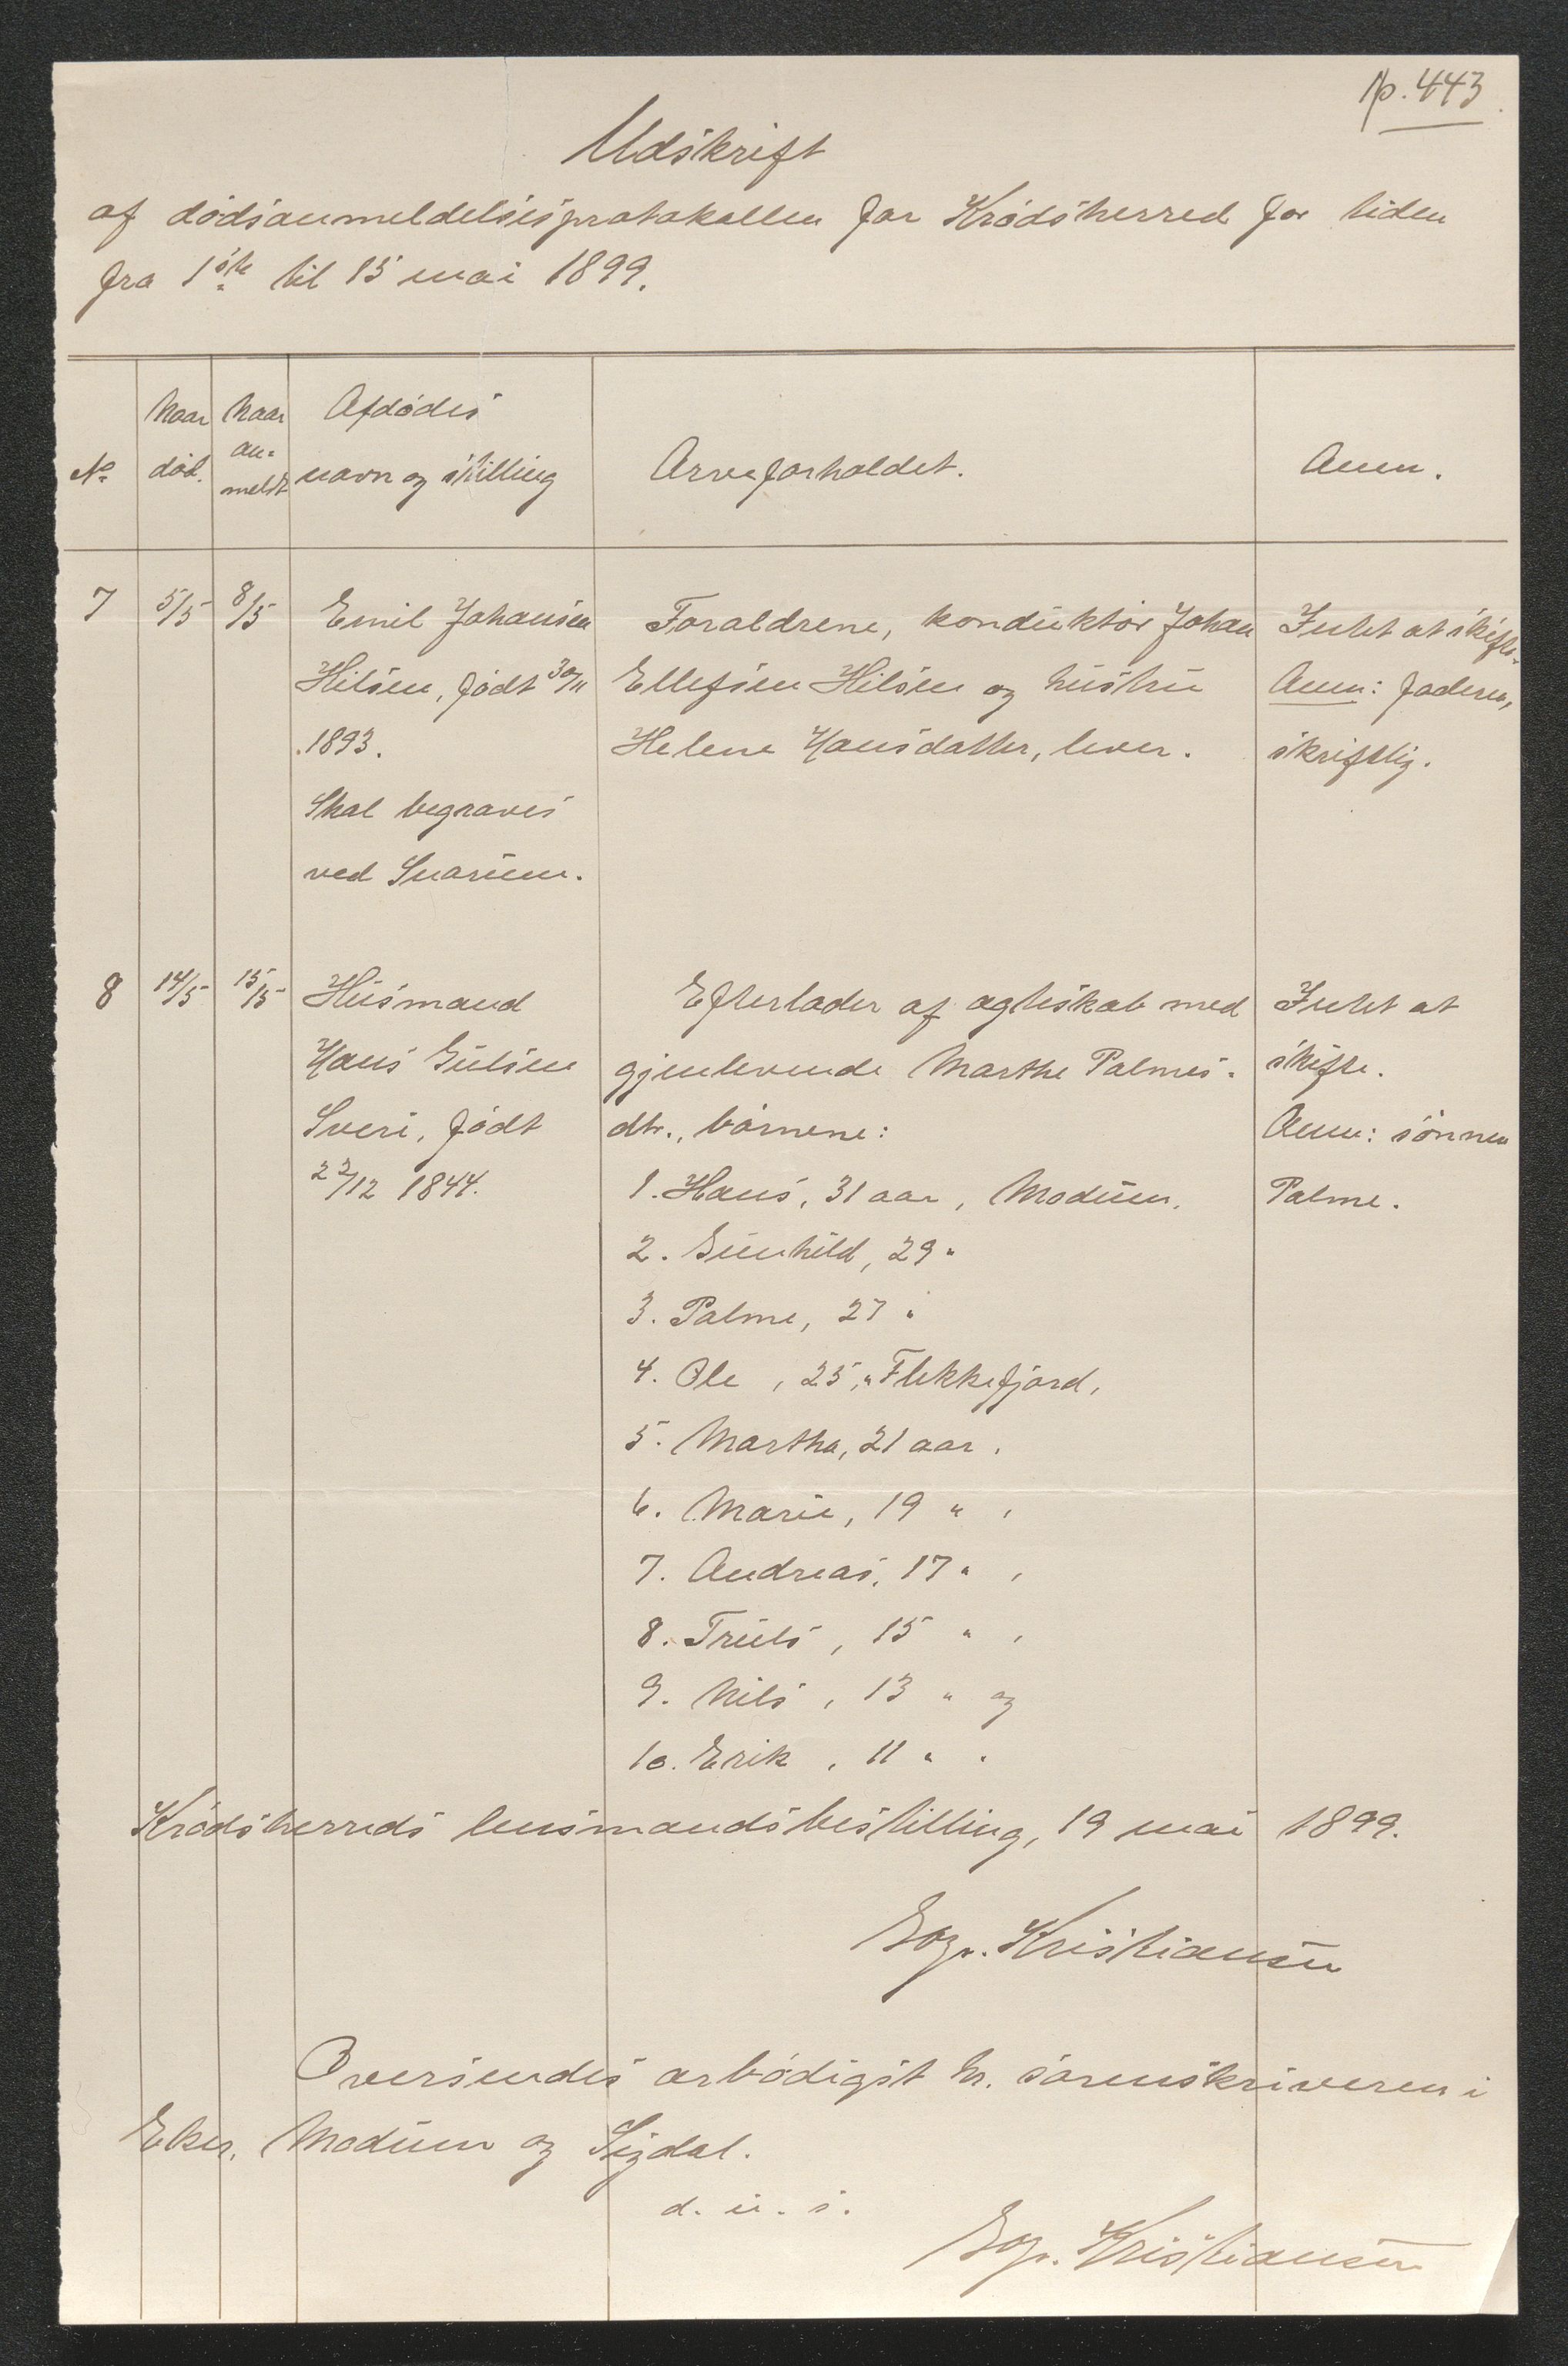 No. 443
Udskrift
af dødsanmeldelsesprotokollen for Krødsherred for tiden
fra 1ste til 15 mai 1899.
No
Naar død.
Naar an- meldt
Afdødes navn og stilling
Arveforholdet.
Anm.
7
5/5
8/5
Emil Johansen
Hilsen, født 30/11
1893.
Skal begraves
ved Snarum.
Forældrene, konduktør Johan
Ellefsen Hilsen og hustru
Helene Hansdatter, lever.
Intet at skifte.
Anm: faderen,
skriftlig.
8
14/5
15/5
Husmand
Hans Gulsen
Sveri, født
22/12 1844.
Efterlader af ægteskab med
gjenlevende Marthe Palmes-
dtr., børnene:
1. Hans, 31 aar, Modum.
2. Gunhild, 29 "
3. Palme, 27 "
4. Ole, 25, " Flekkefjord,
5. Martha, 21 aar.
6. Marie, 19 " ,
7. Andreas, 17 " ,
8. Truls, 15 " ,
9. Nils, 13 " og
10. Erik, 11 " .
Intet at
skifte.
Anm: sønnen
Palme.
Krødsherreds lensmandsbestilling, 19 mai 1899.
Kristiansen
Oversendes ærbødigst hr. sorenskriveren i
Eker, Modum og Sigdal.
d. u. s.
Kristiansen